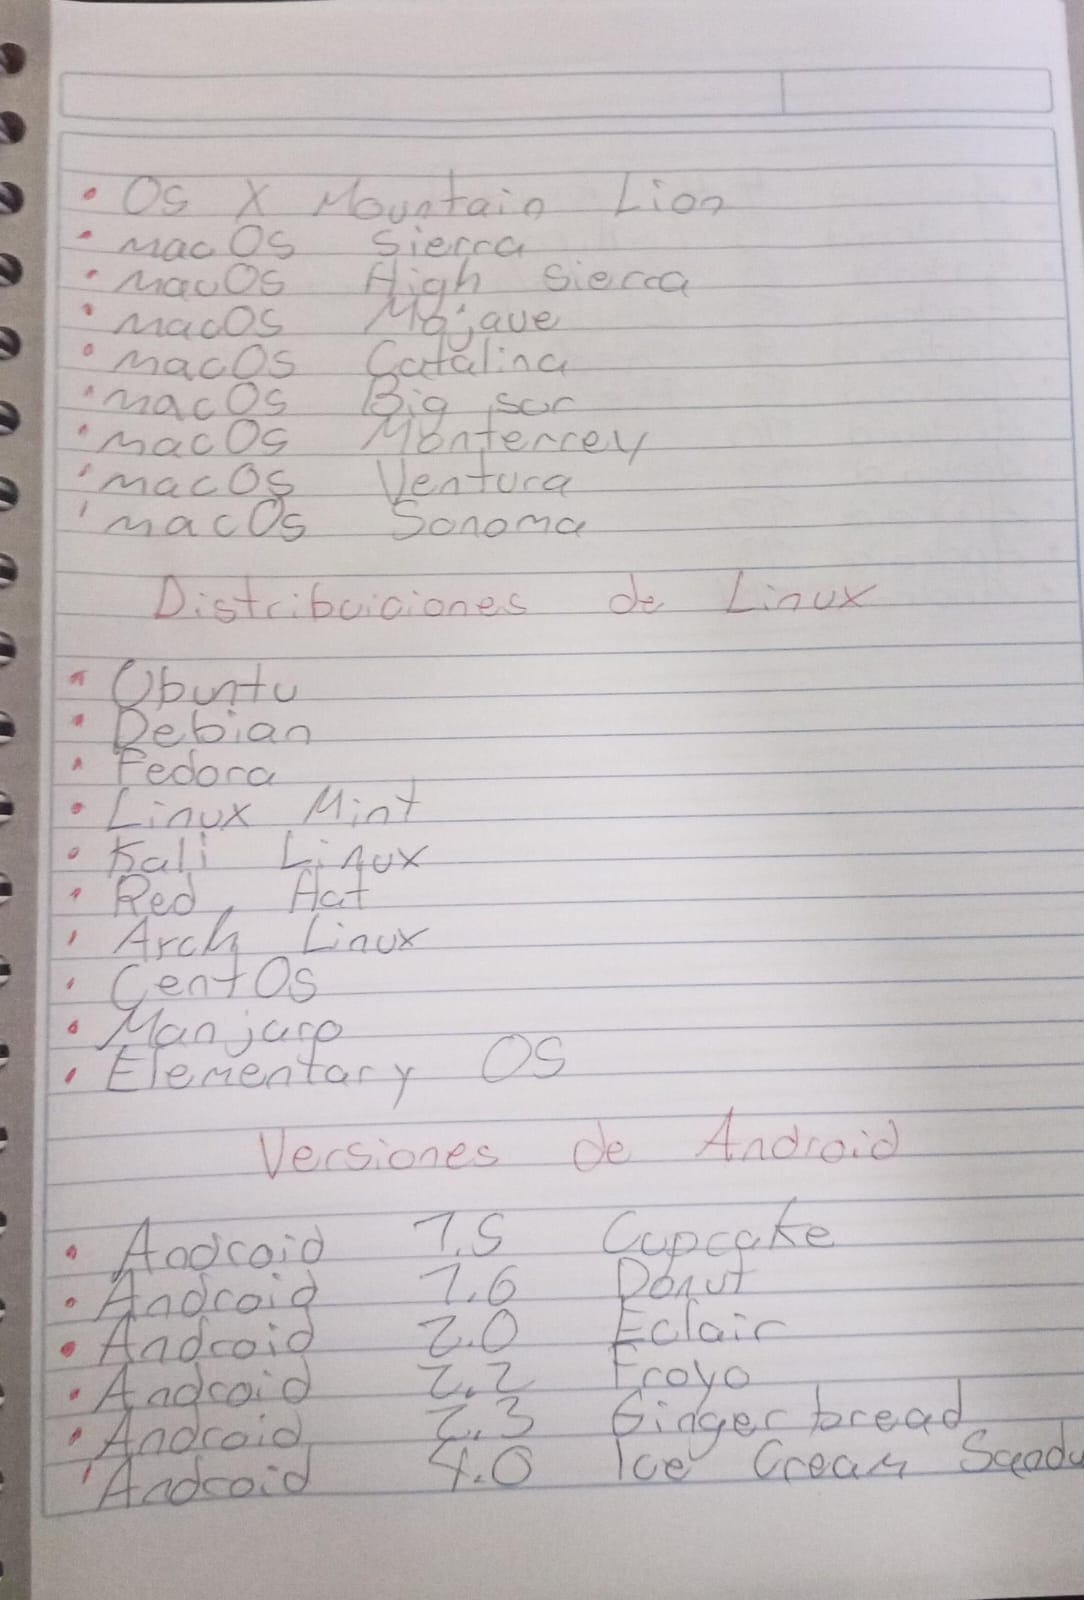 • OS X Mountain Lion
• macOS Sierra
• macOS High Sierra
• macOS Mojave
• macOS Catalina
• macOS Big sur
• macOS Monterrey
• macOS Ventura
• macOS Sonoma
Distribuiciones de Linux
• Ubuntu
• Debian
• Fedora
• Linux Mint
• Kali Linux
• Red Hat
• Arch Linux
• CentOs
• Manjaro
• Elementary OS
Versiones de Android
• Android 1.5 Cupcake
• Android 1.6 Donut
• Android 2.0 Eclair
• Android 2.2 Froyo
• Android 2.3 Gingerbread
• Android 4.0 Ice Cream